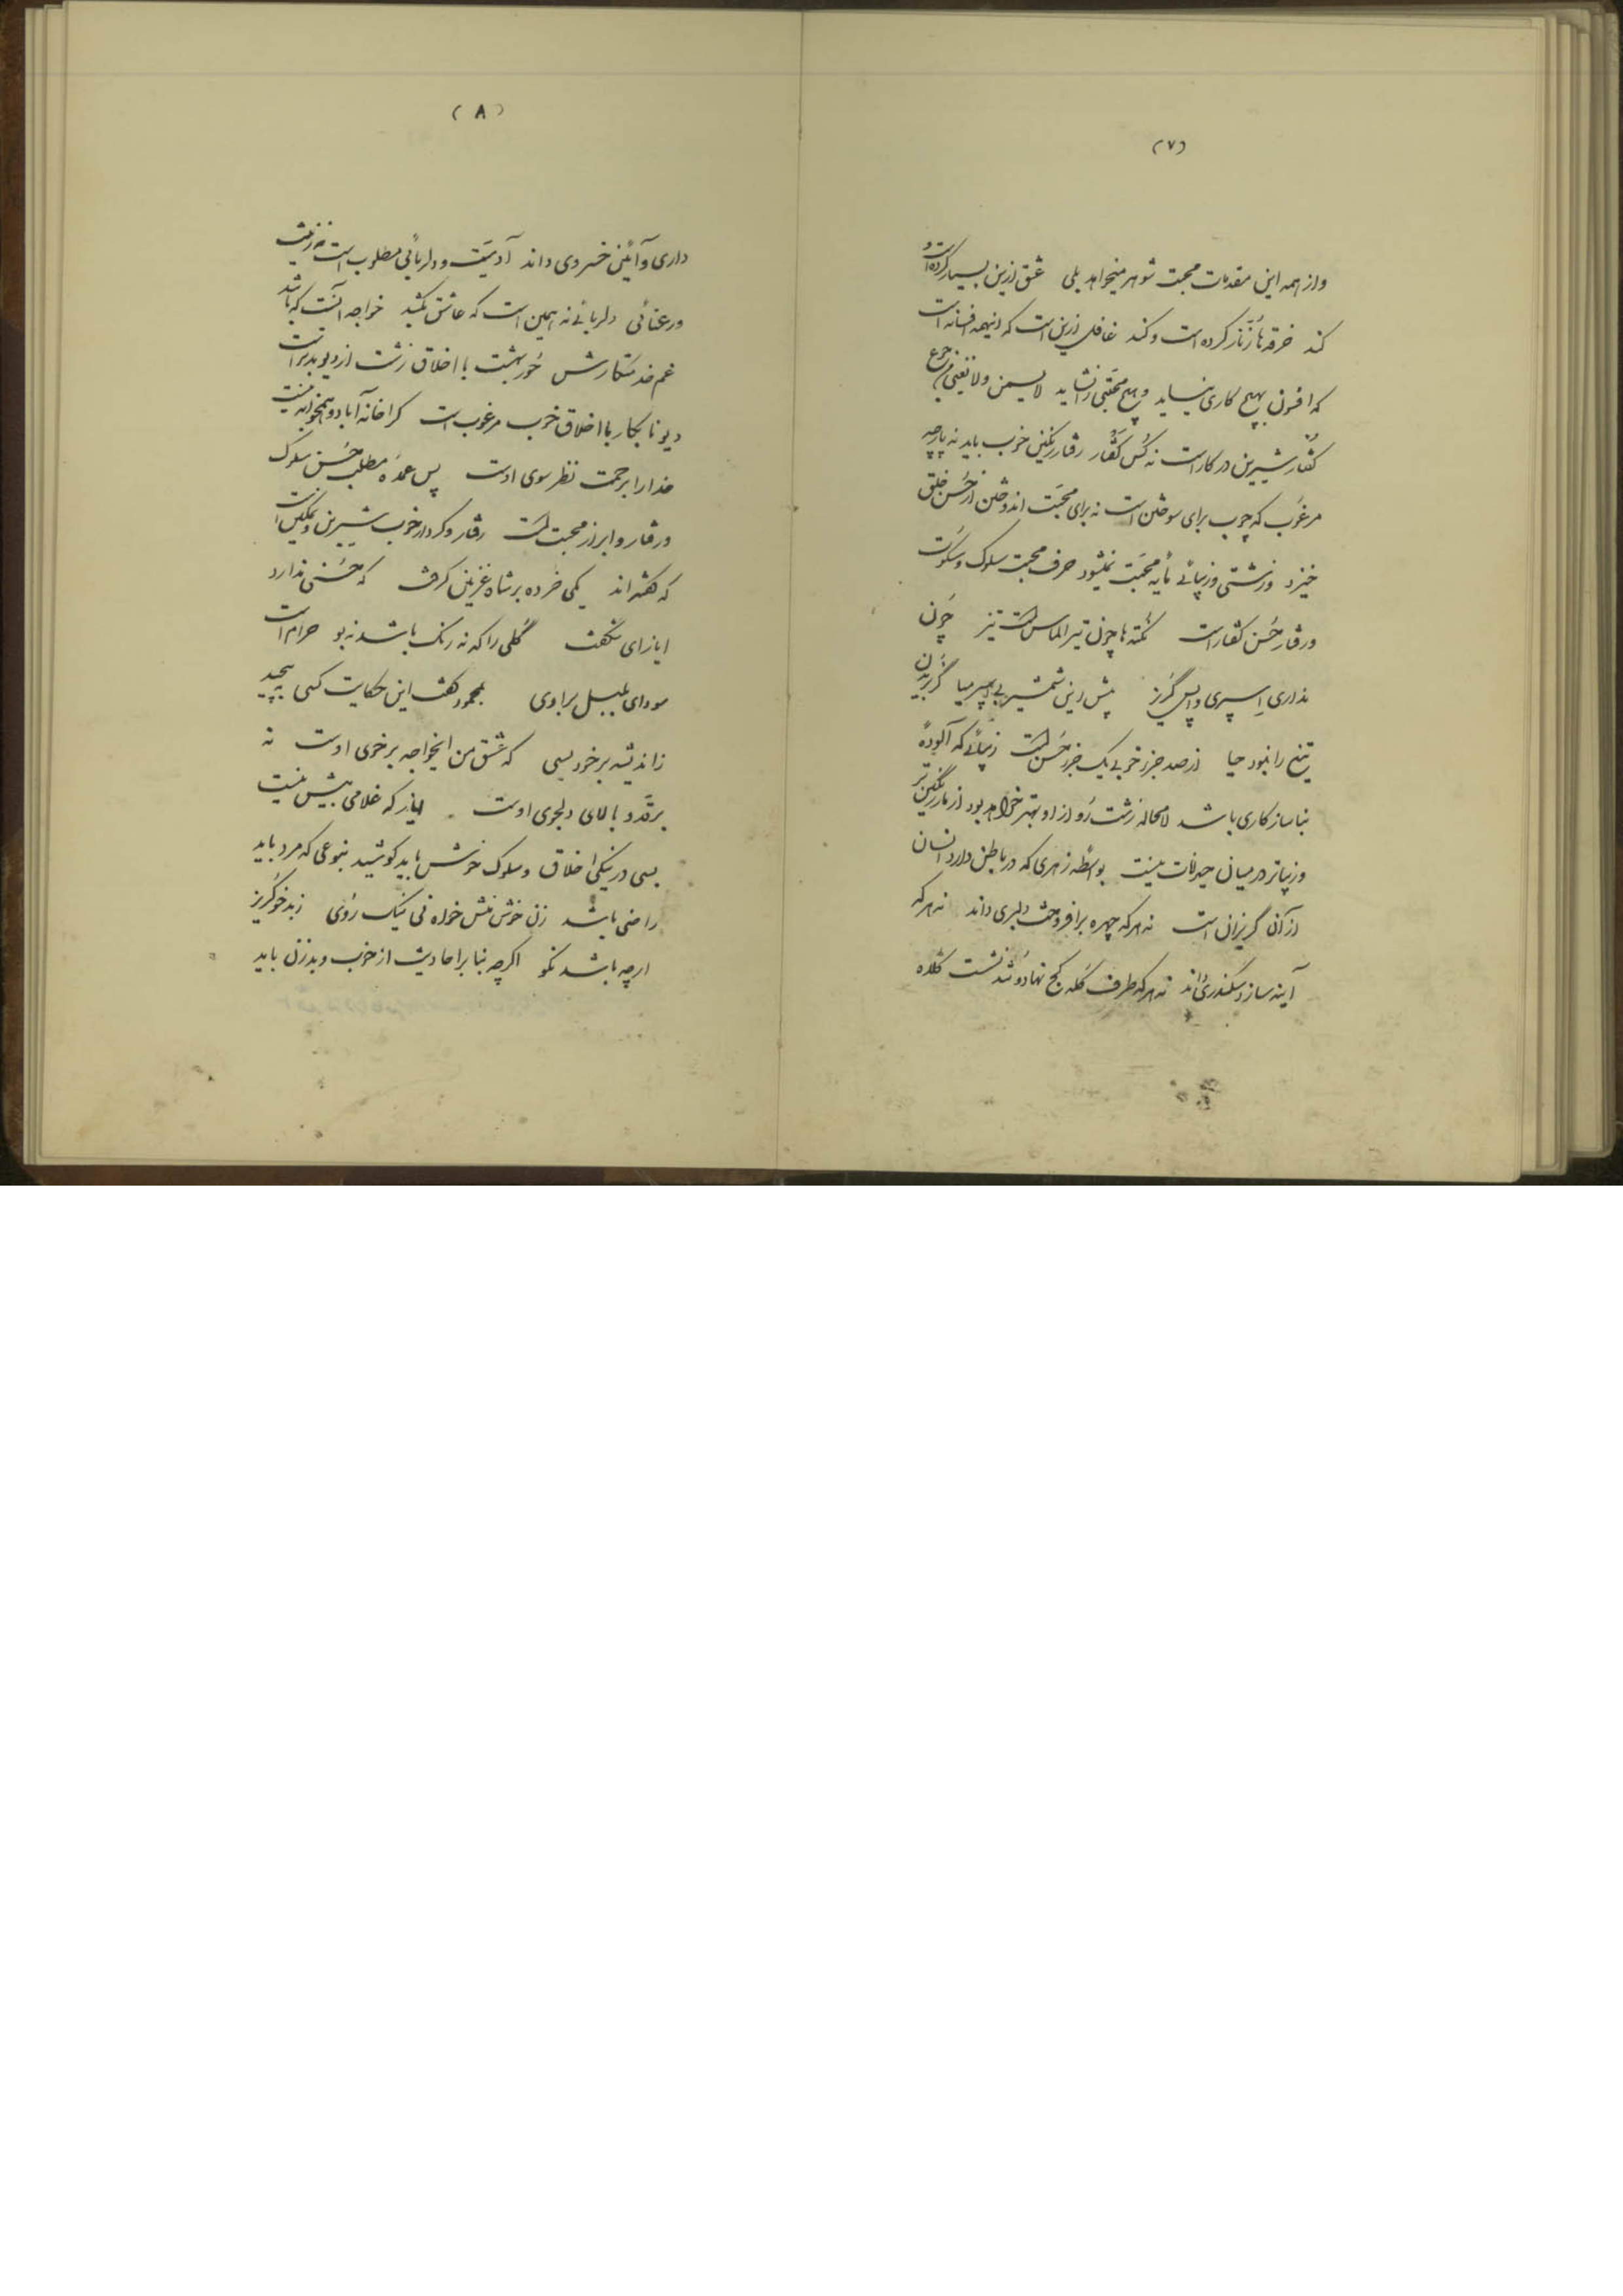 (۷)
واز همه این مقدمات محبت شوهر میخواهد بلی عشق ازین بسیار کرده است و
کند خرقه با زنار کرده است و کند غافل ازین است که اینهمه افسانه است
که افسون بهیچ کاری نیاید و هیچ محبتی را نشاید لا یسمن ولا یغنی من جوع
گفتار شیرین در کار است نه گفتار رفتار رنگین خوب باید نه پارچه
مرغوب که چوب برای سوختن است نه برای محبت اندوختن از حسن خلق
خیزد و زشتی و زیبائی مایه محبت نمیشود حرف محبت سلوک و سکوت
و رفتار حسن گفتار است نکته ها چون تیر الماس است تیز چون
نداری اسپری واپس گریز پیش این شمشیر بی اسپر میا کز بریدن
تیغ را نبود حیا از صد جزو خوبی یک جزو حسن است زیبائی که آلوده
بناسازکاری باشد لامحاله زشت رو از او بهتر خواهد بود از مار رنگین تر
و زیباتر در میان حیوانات نیست بواسطه زهری که در باطن دارد انسان
از آن گریزان است نه هر که چهره برافروخت دلبری داند نه هر که
آینه سازد سکندری داند نه هر که طرف کله کج نهاد و تند نشست کلاه
(۸)
داری و آئین خسروی داند آدمیت و دلربائی مطلوب است نه زینت
و رعنائی دلربائی نه همین است که عاشق بکشد خواجه آنست که باشد
غم خدمتکارش حور بهشت با اخلاق زشت از دیو بدتر است
دیو نابکار با اخلاق خوب مرغوب است کرا خانه آباد و همخوابه نیست
خدا را برحمت نظر سوی اوست پس عمده مطلب حسن سلوک
و رفتار و ابراز محبت است رفتار و کردار خوب شیرین و نمکین است
که گفته اند یکی خرده بر شاه غزنین گرفت که حسنی ندارد
ایاز ای شگفت گلی را که نه رنگ باشد نه بو حرام است
سودای بلبل بر اوی بمحمود گفت این حکایت کسی بپیچید
ز اندیشه بر خود بسی که عشق من ایخواجه بر خوی اوست نه
بر قد و بالای دلجوی اوست ایاز که غلامی بیش نیست
بسی در نیکی اخلاق و سلوک خوش باید کوشید بنوعی که مرد باید
راضی باشد زن خوش منش خواه نی نیک روی ز بدخو گریز
ارچه باشد نکو اگرچه بنا بر احادیث از خوب و بد زن باید